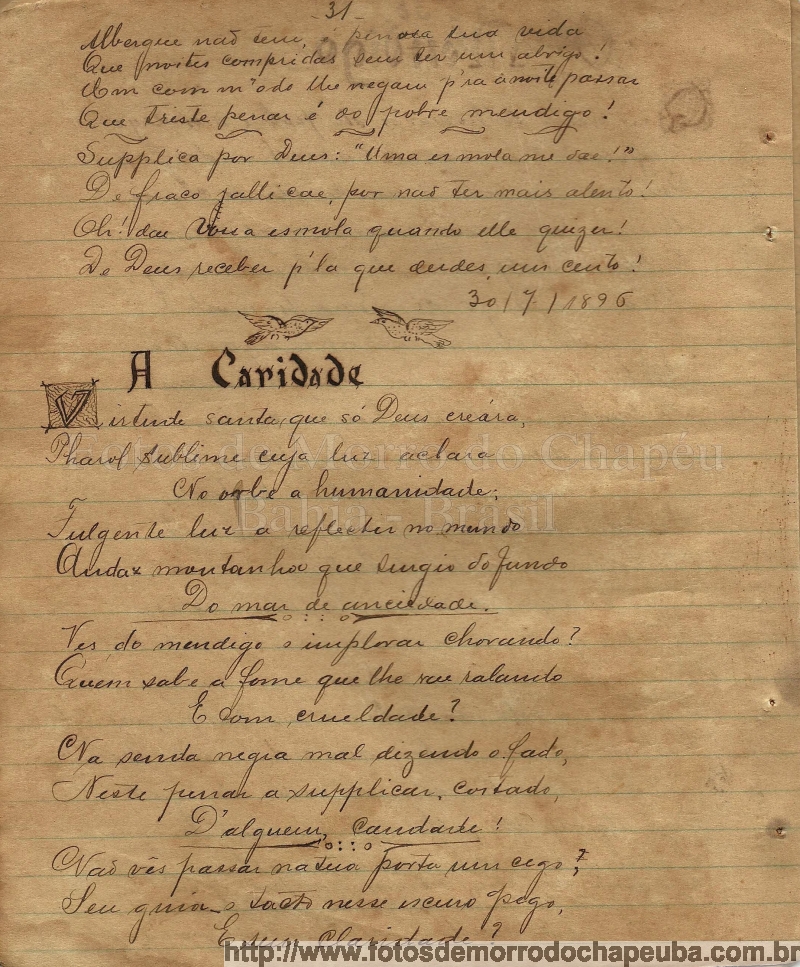 - 31 -
Albergue não tem, é penosa sua vida
Que noites compridas sem ter um abrigo!
Um commodo lhe negam p'ra a noite passar
Que triste penar é do pobre mendigo!
Supplica por Deus: "Uma esmola me dae!"
De fraco fallicae, por não ter mais alento!
Oh! dae Vossa esmola quando elle quizer!
De Deus receber p'la que derdes, um cento!
30/7/1896
A Caridade
Virtude santa, que só Deus creára,
Pharol sublime cuja luz aclara
No orbe a humanidade;
Fulgente luz a reflectir no mundo
Audax montanha que surgio do fundo
Do mar de anciedade.
Vês do mendigo o implorar chorando?
Quem sabe a fome que lhe vae ralando
E com crueldade?
Na senda negra mal dizendo o fado,
Neste penar a supplicar, coitado,
D'alguem, caridade!
Não vês passar na tua porta um cego,
Seu guia o tacto nesse escuro pego,
E sem claridade?
Fotos de Morro do Chapeu
Bahia - Brasil
http://www.fotosdemorrodochapeuba.com.br